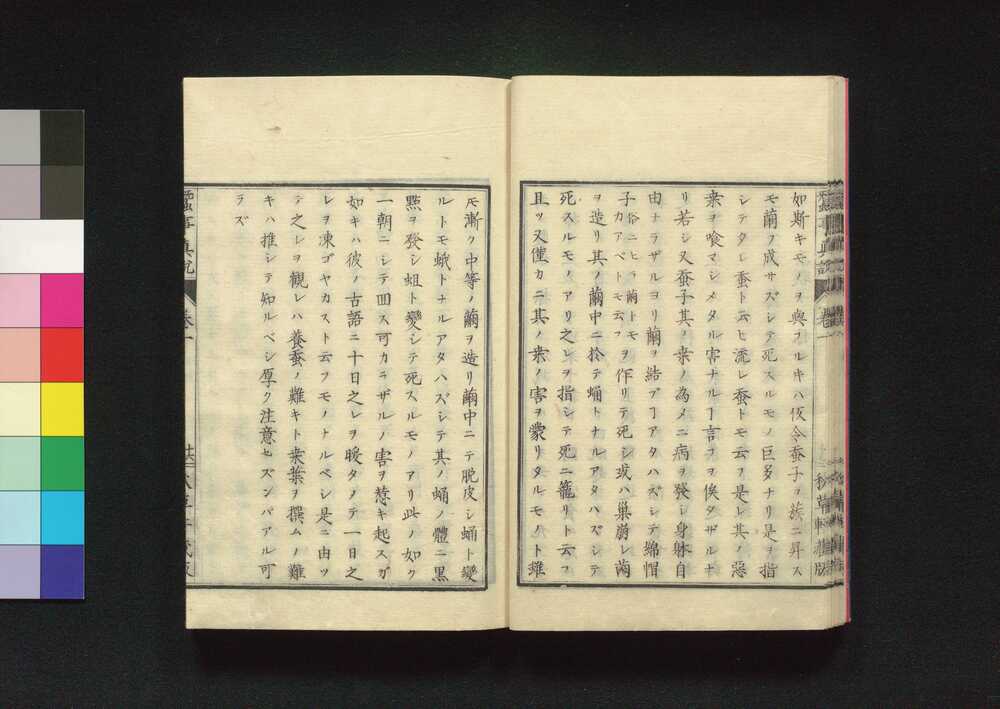 如斯キモノヲ與フルキハ仮令蚕子ヲ蔟ニ昇ス
モ繭ヲ成サズシテ死スルモノ巨多ナリ是ヲ指
シテタレ蚕ト云ヒ流レ蚕トモ云フ是レ其ノ惡
桒ヲ喰マシメタル害ナルヿ言フヲ俟タザルナ
リ若シ又蚕子其ノ桒ノ為メニ病ヲ發シ身躰自
由ナラザルヨリ繭ヲ結ブヿアタハズシテ綿帽
子俗ニヒラ繭トモカアベトモ云フヲ作リテ死シ或ハ巣崩レ繭
ヲ造リ其ノ繭中ニ於テ蛹トナルアタハズシテ
死スルモノアリ之レヲ指シテ死ニ籠リト云フ
且ツ又僅カニ其ノ桒ノ害ヲ蒙リタルモノト雖
蠶事真説
巻一
秋草軒藏版
𪜈漸ク中等ノ繭ヲ造リ繭中ニテ脱皮シ蛹ト變
ルトモ蛾トナルアタハズシテ其ノ蛹ノ體ニ黒
㸃ヲ發シ蛆ト變シテ死スルモノアリ此ノ如ク
一朝ニシテ回ス可カラザルノ害ヲ惹キ起スガ
如キハ彼ノ古語ニ十日之レヲ暖タメテ一日之
レヲ凍ゴヤカスト云フモノナルベシ是ニ由ツ
テ之レヲ觀レハ養蚕ノ難キト桒葉ヲ撰ムノ難
キハ推シテ知ルベシ厚ク注意セズンバアル可
ラズ
蠶事真説
巻一